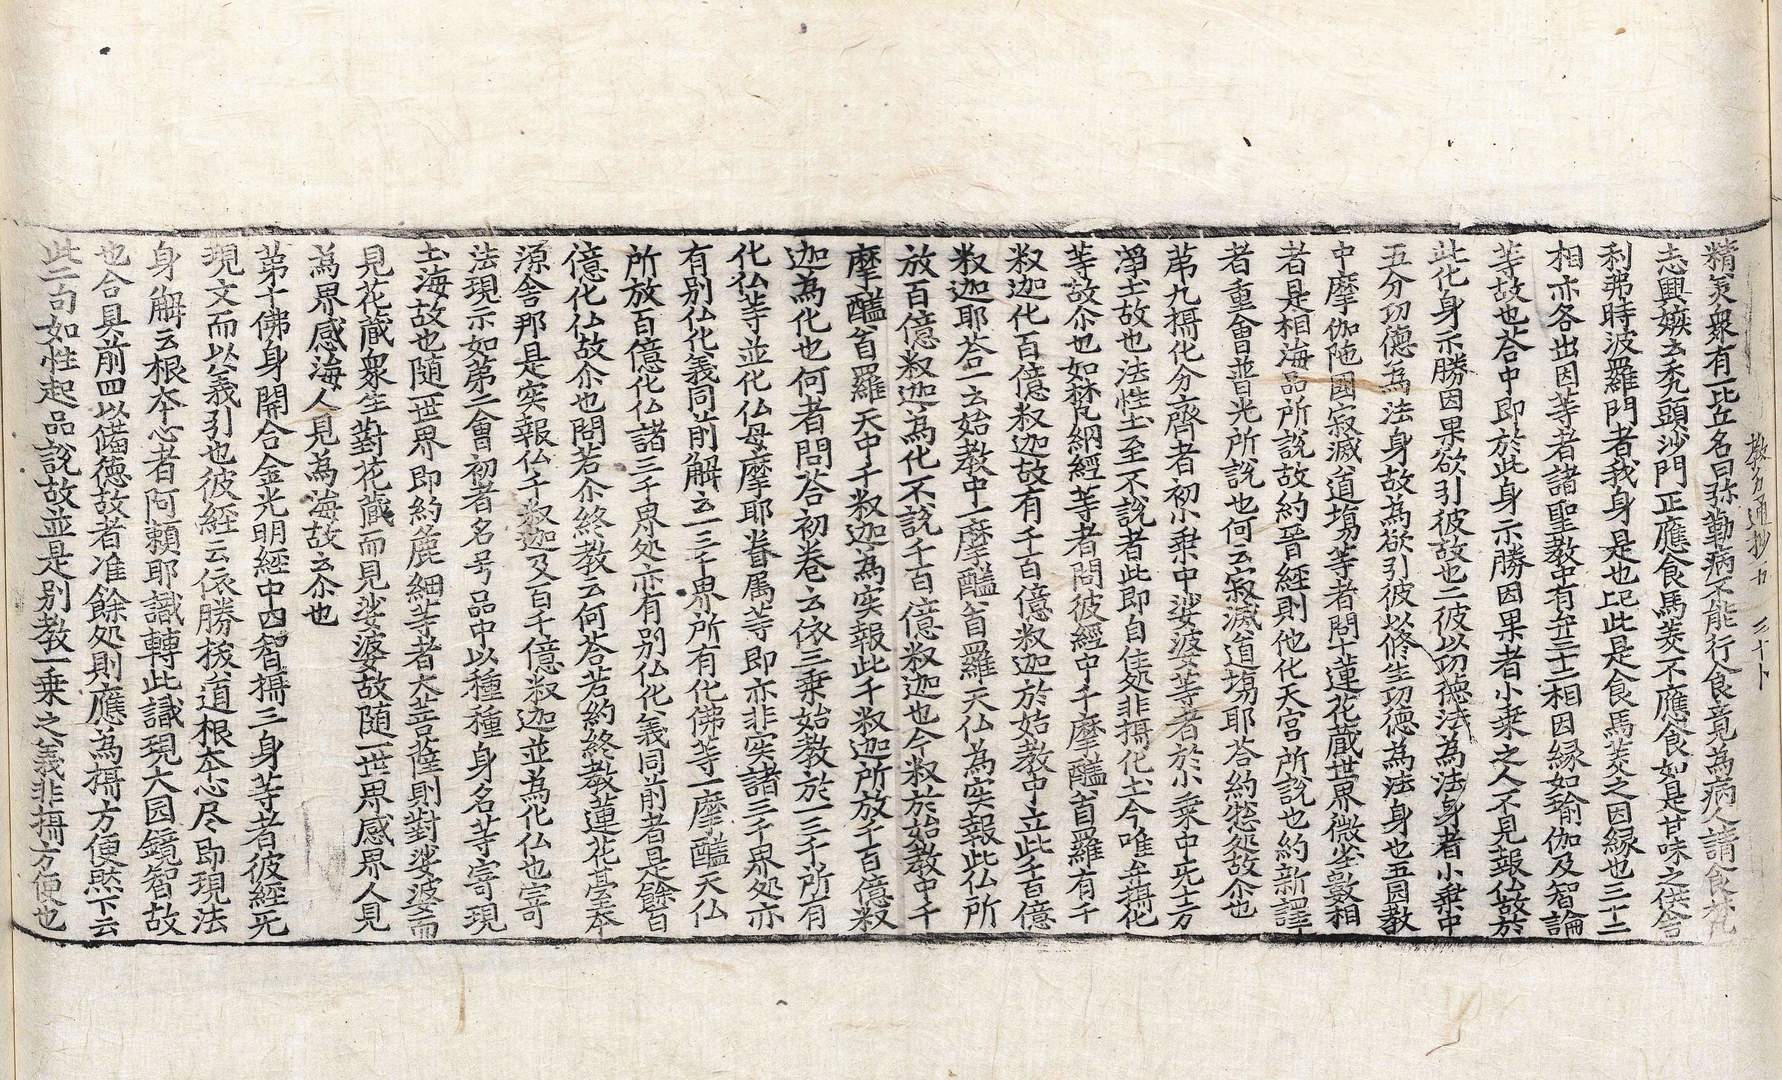 教分通抄一
志興嫉云禿頭沙門正應食馬麦不應食如是甘味之供舍
利弗時波羅門者我身是也此是食馬麦之因縁也三十二
相亦各出因等者諸聖教中有弁三十二相因縁如瑜伽及智論
等故也荅中即於此身示勝因果者小乗之人不見報仏故於
此化身示勝因果欲引彼故也二彼以功徳法為法身者小乗中
五分功徳為法身故為欲引彼以修生功徳為法身也五圎教
中摩伽陁國寂滅道塲等者問蓮花蔵世界微塵數相
者是相海品所說故約晉經則他化天宮所說也約新譯
者重會普光所說也何云寂滅道塲耶荅約㧾処故尒也
苐九攝化分齊者初小乗中娑婆等者於小乗中旡十方
淨土故也法性土至不說者此即自住処非攝化土今唯弁攝化
等故尒也如梵網經等者問彼經中千摩醯首羅有千
釈迦化百億釈迦故有千百億釈迦於始教中立此千百億
釈迦耶荅一云始教中一摩醯首羅天仏為実報此仏所
放百億釈迦為化不說千百億釈迦也今釈於始教中千
摩醯首羅天中千釈迦為実報此千釈迦所放千百億釈
迦為化也何者問荅初卷云依三乗始教於一三千所有
化仏等並化仏母摩耶眷属等即亦非実諸三千界処亦
有别仏化義同前解云一三千界所有化佛等一摩醯天仏
所放百億化仏諸三千界処亦有别仏化義同前者是餘百
億化仏故尒也問若尒終教云何荅若約終教蓮花臺本
源舎那是実報仏千釈迦及百千億釈迦並為化仏也寄
法現示如第二會初者名号品中以種種身名等寄現
土海故也随一世界即約麁細等者大菩薩則對娑婆而
見花蔵衆生對花蔵而見娑婆故随一世界感界人見
為界感海人見為海故云尒也
苐十佛身開合金光明經中四智攝三身等者彼經旡
現文而以義引也彼經云依勝㧞道根本心尽即現法
身解云根本心者阿頼耶識轉此識現大圎鏡智故
也合具前四以備徳故者准餘処則應為攝方便然下云
此二句如性起品說故並是别教一乗之義非攝方便也